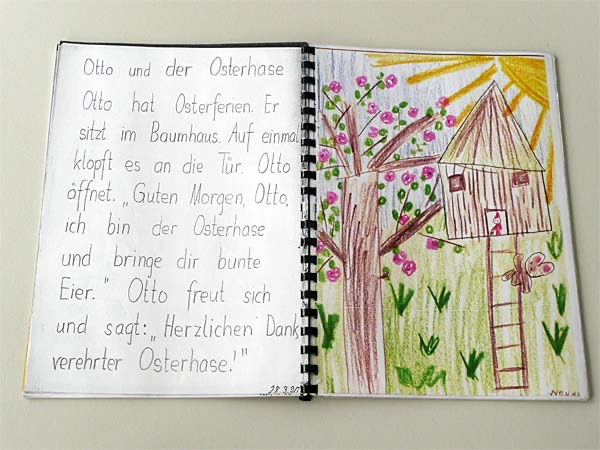 Otto und der Osterhase
Otto hat Osterferien. Er
sitzt im Baumhaus. Auf einmal
klopft es an die Tür. Otto
öffnet. „Guten Morgen, Otto,
ich bin der Osterhase
und bringe dir bunte
Eier." Otto freut sich
und sagt: „Herzlichen Dank,
verehrter Osterhase!"